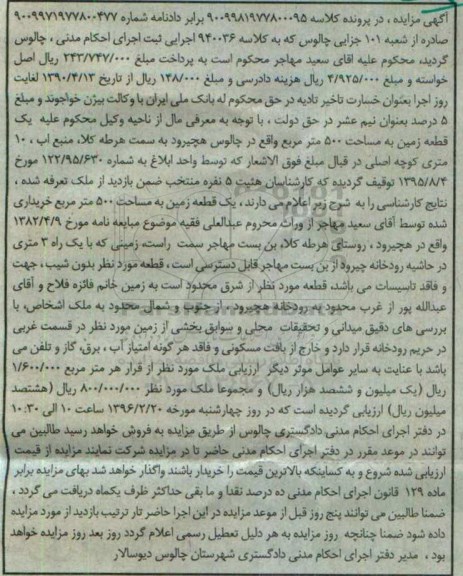 آگهی مزایده ، در پرونده کلاسه ۹۰۰۹۹۸۱۹۷۷۸۰۰۰۹۵ برابر دادنامه شماره ۹۰۰۹۹۷۱۹۷۷۸۰۰۴۷۷
صادره از شعبه ۱۰۱ جزایی چالوس که به کلاسه ۹۴۰۰۳۶ اجرایی ثبت اجرای احکام مدنی ، چالوس
گردید، محکوم علیه اقای سعید مهاجر محکوم است به پرداخت مبلغ ۲۴۳/۷۴۷/۰۰۰ ریال اصل
خواسته و مبلغ ۴/۹۲۵/۰۰۰ ریال هزینه دادرسی و مبلغ ۱۴۸/۰۰۰ ریال از تاریخ ۱۳۹۰/۴/۱۳ لغایت
روز اجرا بعنوان خسارت تاخیر تادیه در حق محکوم له بانک ملی ایران با وکالت بیژن خواجوند و مبلغ
۵ درصد بعنوان نیم عشر در حق دولت ، با توجه به معرفی مال از ناحیه وکیل محکوم علیه یک
قطعه زمین به مساحت ۵۰۰ متر مربع واقع در چالوس هچیرود به سمت هرطه کلا، منبع اب ، ۱۰
متری کوچه اصلی در قبال مبلغ فوق الاشعار که توسط واحد ابلاغ به شماره ۱۲۲/۹۵/۶۳۰ مورخ
۱۳۹۵/۸/۴ توقیف گردیده که کارشناسان هئیت ۵ نفره منتخب ضمن بازدید از ملک تعرفه شده ،
نتایج کارشناسی را به شرح زیر اعلام می دارند ، یک قطعه زمین به مساحت ۵۰۰ متر مربع خریداری
شده توسط آقای سعید مهاجر از وراث محروم عبدالعلی فقیه موضوع مبایعه نامه مورخ ۱۳۸۲/۴/۹
واقع در هچیرود ، روستای هرطه کلا، بن بست مهاجر سمت راست، زمینی که با یک راه ۳ متری
در حاشیه رودخانه چیرود از بن بست مهاجر قابل دسترسی است ، قطعه مورد نظر بدون شیب، جهت
و فاقد تاسیسات می باشد، قطعه مورد نظر از شرق محدود است به زمین خانم فائزه فلاح و آقای
عبدالله پور از غرب محدود به رودخانه هچیرود ، از جنوب و شمال محدود به ملک اشخاص، با
بررسی های دقیق میدانی و تحقیقات محلی و سوابق بخشی از زمین مورد نظر در قسمت غربی
در حریم رودخانه قرار دارد و خارج از بافت مسکونی و فاقد هر گونه امتیاز آب ، برق، گاز و تلفن می
باشد با عنایت به سایر عوامل موثر دیگر ارزیابی ملک مورد نظر از قرار هر متر مربع ۱/۶۰۰/۰۰۰
ریال (یک میلیون و ششصد هزار ریال) و مجموعا ملک مورد نظر ۸۰۰/۰۰۰/۰۰۰ ریال (هشتصد
میلیون ریال) ارزیابی گردیده است که در روز چهارشنبه مورخه ۱۳۹۶/۲/۲۰ ساعت ۱۰ الی ۱۰:۳۰
در دفتر اجرای احکام مدنی دادگستری چالوس از طریق مزایده به فروش خواهد رسید طالبین می
توانند در موعد مقرر در دفتر اجرای احکام مدنی حاضر تا در مزایده شرکت نمایند مزایده از قیمت
ارزیابی شده شروع و به کسانیکه بالاترین قیمت را خریدار باشند واگذار خواهد شد بهای مزایده برابر
ماده ۱۲۹ قانون اجرای احکام مدنی ده درصد نقدا و ما بقی حداکثر ظرف یکماه دریافت می گردد ،
ضمنا طالبین می توانند پنج روز قبل از موعد مزایده در این اجرا حاضر تار ترتیب بازدید از مورد مزایده
داده شود ضمنا چنانچه روز مزایده به هر دلیل تعطیل رسمی اعلام گردد روز بعد روز مزایده خواهد
بود ، مدیر دفتر اجرای احکام مدنی دادگستری شهرستان چالوس دیوسالار